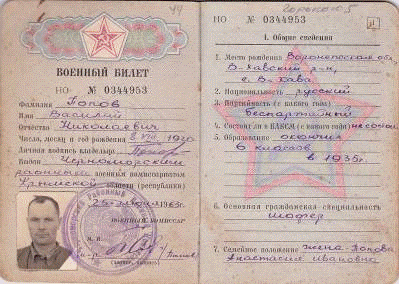 44
ВОЕННЫЙ БИЛЕТ
НО № 0344953
Фамилия Попов
Имя Василий
Отчество Николаевич
Число, месяц и год рождения 8 VIII 1920
Личная подпись владельца
Выдан Черноморским
районным военным комиссариатом
Крымской области (республики)
25 1965г.
ВОЕННЫЙ КОМИССАР
М. П.
НО № 0344953
1. Общие сведения
1. Место рождения Воронежская обл,
В-Хавский р-н,
с. В-Хава
2. Национальность русский
3. Партийность (с какого года)
беспартийный
4. Состоял ли в ВЛКСМ (с какого года) не состоял
5. Образование окончил
6 классов
в 1935г.
6. Основная гражданская специальность
шофер
7. Семейное положение жена-Попова
Анастасия Ивановна